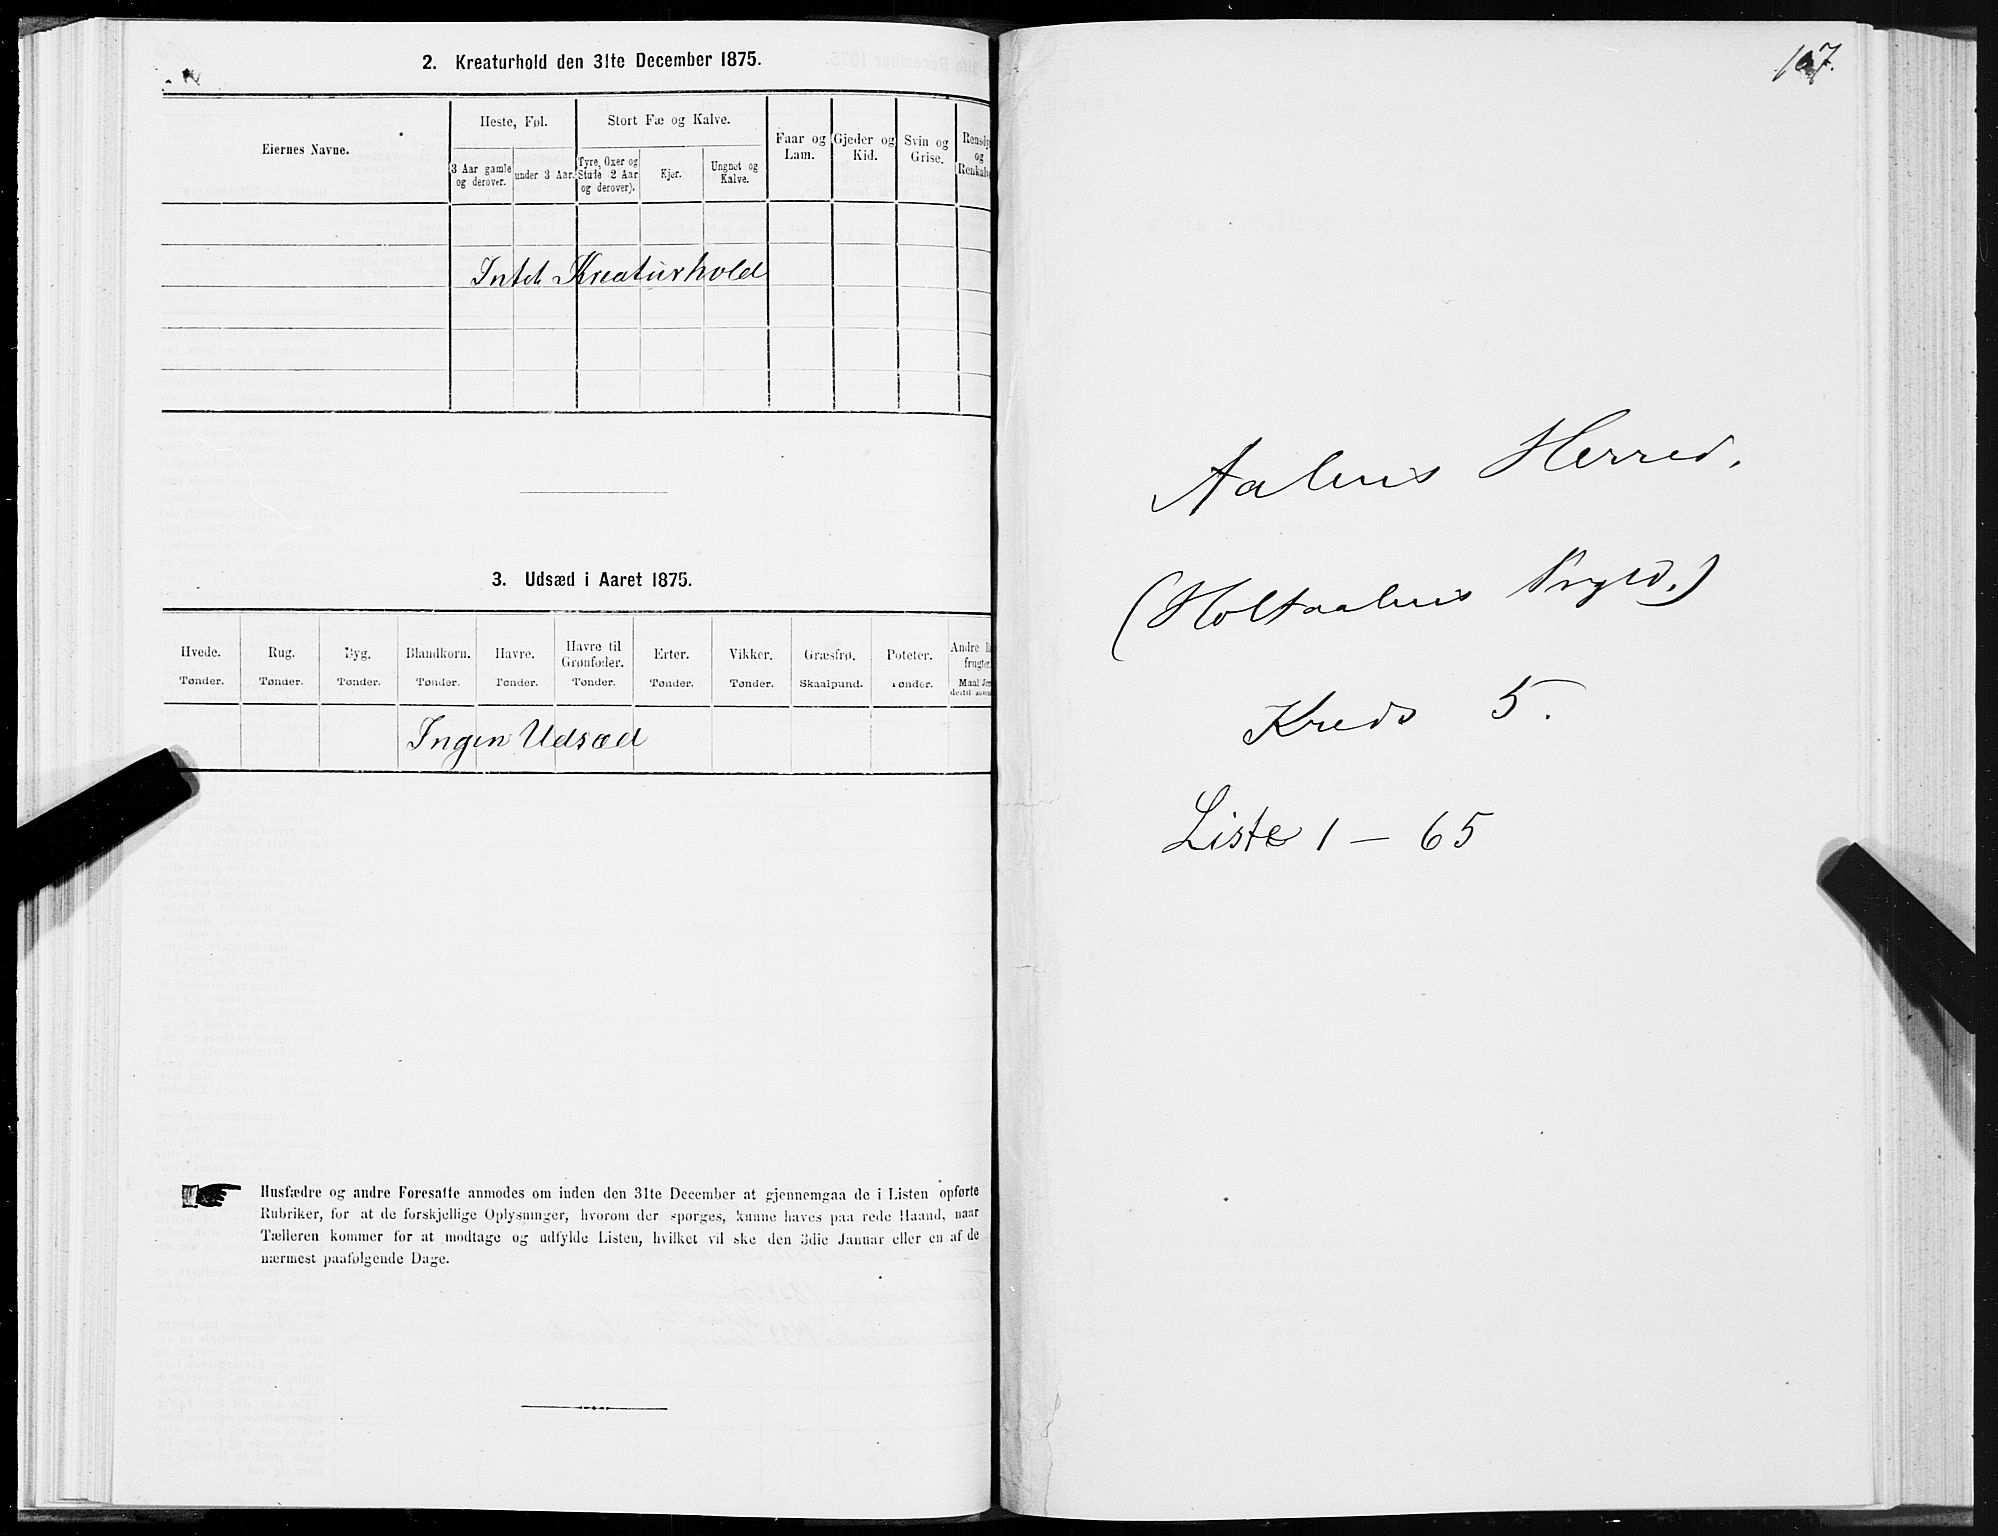 2. Kreaturhold den 31te December 1875.
Eiernes Navne.
Heste, Føl.
3 Aar gamle
og derover.
under 3 Aar.
Stort Fæ og Kalve.
Tyre, Oxer og
Stude (2 Aar
og derover).
Kjør.
Ungnøt og
Kalve.
Faar og
Lam.
Gjeder og
Kid.
Svin og
Grise.
og
Intet Kreaturhold
3. Udsæd i Aaret 1875.
Hvede. Rug. Byg. Blandkorn. Havre. Havre til
Grønfoder. Erter. Vikker. Græsfrø. Poteter. Andre
Tønder. Tønder. Tønder. Tønder. Tønder. Tønder. Tønder. Tønder. Skaalpund. Tønder. Maal
Ingen Udsæd
Husfædre og andre Foresatte anmodes om inden den 31te December at gjennemgaa de i Listen opførte
Rubriker, for at de forskjellige Oplysninger, hvorom der spørges, kunne haves paa rede Haand, naar
Tælleren kommer for at modtage og udfylde Listen, hvilket vil ske den 3die Januar eller en af de
nærmest paafølgende Dage.
167.
Aalens Herred.
(Holtaalens Prgld.)
Kreds 5.
Liste 1 - 65